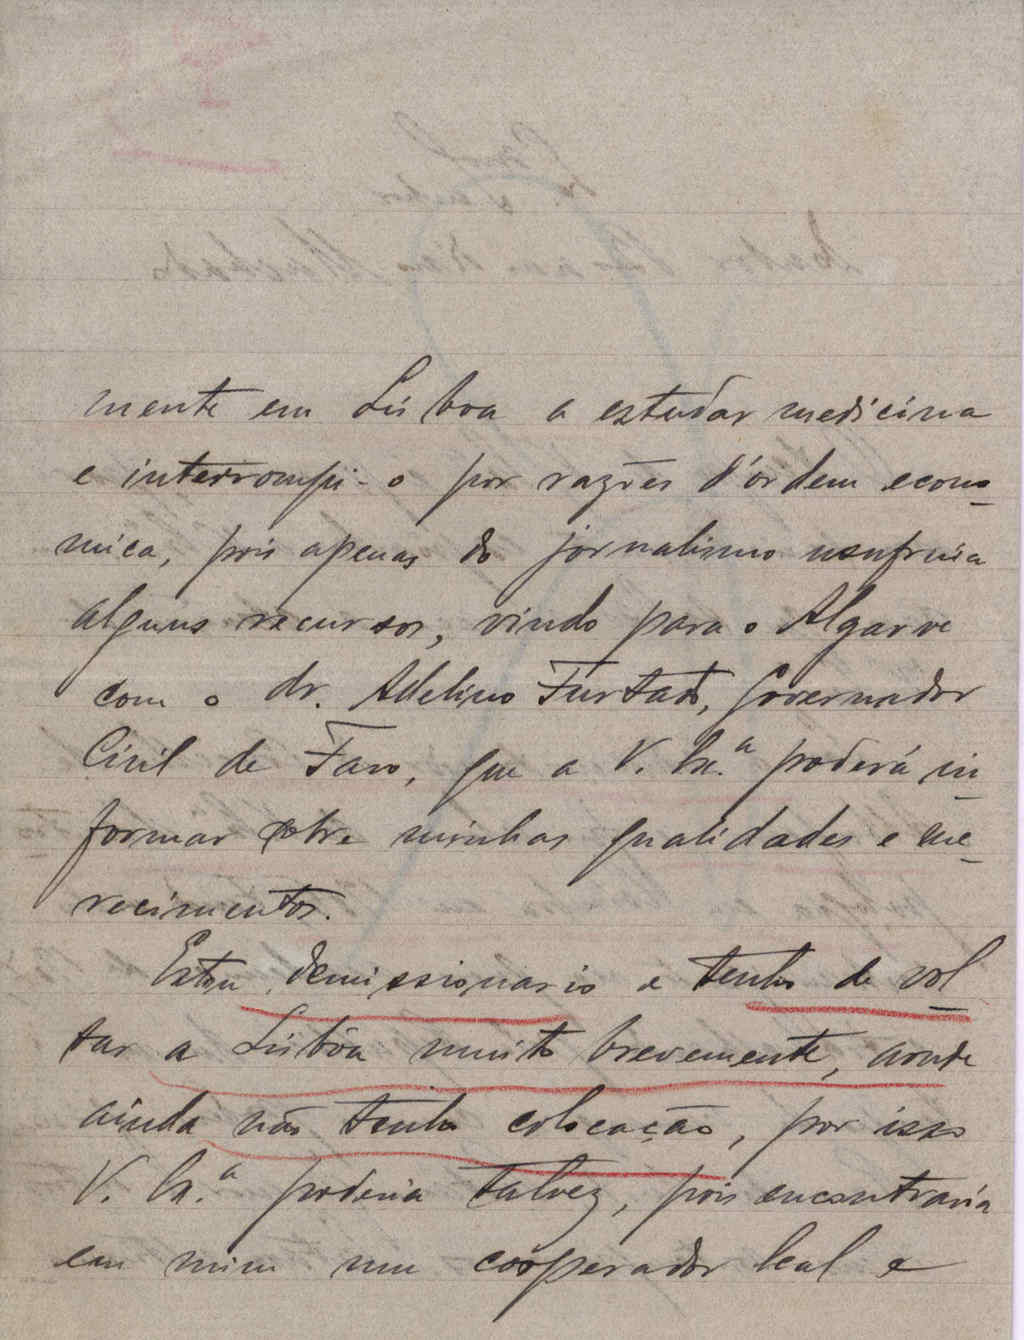 mente em Lisboa a estudar medicina
e interrompi-o por razões d'ordem econo-
mica, pois apenas do jornalismo usufruia
alguns recursos, vindo para o Algarve
com o dr. Adelino Furtado, Governador
Civil de Faro, que a V. Ex.ª poderá in-
formar sobre minhas qualidades e me-
recimentos.
Estou demissionario e tenho de vol-
tar a Lisbôa muito brevemente, aonde
ainda não tenho colocação, por isso
V. Ex.ª poderia talvez, pois encontraria
em mim um cooperador leal e